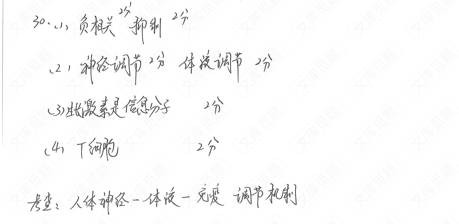 30.(1) 负相关 2分 抑制 2分
(2) 神经调节 2分 体液调节 2分
(3) 性激素是信息分子 2分
(4) T细胞 2分
考查：人体神经－体液－免疫 调节机制